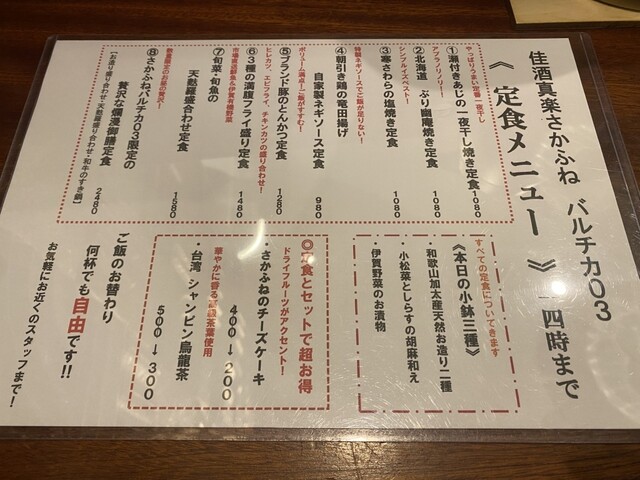 佳酒真楽さかふね バルチカ03
《 定食メニュー 》 一四時まで
やっぱりうまい定番一夜干し
①瀬付きあじの一夜干し焼き定食 1080
アブラノリノリー!
②北海道 ぶり幽庵焼き定食 1080
シンプルイズベスト!
③寒さわらの塩焼き定食 1080
特製ネギソースでご飯が足りない!
④朝引き鶏の竜田揚げ
自家製ネギソース定食 980
ボリューム満点!ご飯がすすむ!
⑤ブランド豚のとんかつ定食 1280
ヒレカツ、エビフライ、チキンカツの盛り合わせ!
⑥3種の満腹フライ盛り定食 1480
市場直送鮮魚&伊賀有機野菜
⑦旬菜・旬魚の
天麩羅盛合わせ定食 1580
数量限定のお昼の贅沢!
⑧さかふねバルチカ03限定の
贅沢な爛漫御膳定食 2480
【お造り盛り合わせ・天麩羅盛り合わせ・和牛のすき鍋】
すべての定食についてきます
《本日の小鉢三種》
・和歌山加太産天然お造り二種
・小松菜としらすの胡麻和え
・伊賀野菜のお漬物
◎定食とセットで超お得
ドライフルーツがアクセント!
・さかふねのチーズケーキ
400→200
華やかに香る高級茶葉使用
・台湾 シャンピン烏龍茶
500→300
ご飯のお替わり
何杯でも自由です!!
お気軽にお近くのスタッフまで!